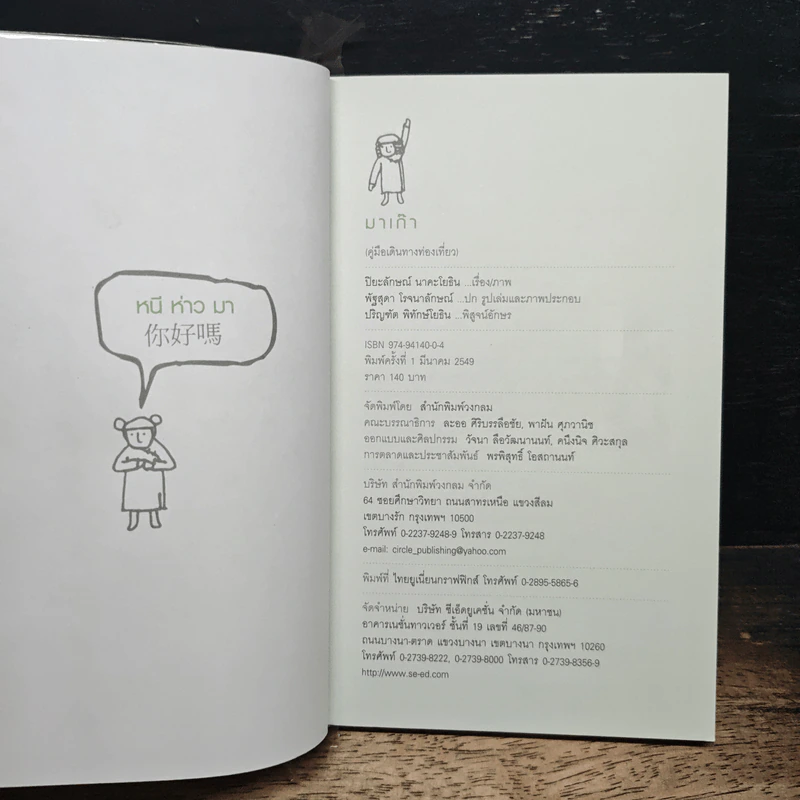 หนี ห่าว มา
你好嗎
มาเก๊า
(คู่มือเดินทางท่องเที่ยว)
ปิยะลักษณ์ นาคะโยธิน ...เรื่อง/ภาพ
พัฐสุดา โรจนาลักษณ์ ...ปก รูปเล่มและภาพประกอบ
ปริญฑัต พิทักษ์โยธิน ...พิสูจน์อักษร
ISBN 974-94140-0-4
พิมพ์ครั้งที่ 1 มีนาคม 2549
ราคา 140 บาท
จัดพิมพ์โดย สำนักพิมพ์วงกลม
คณะบรรณาธิการ ละออ ศิริบรรลือชัย, พาฝัน ศุภวานิช
ออกแบบและศิลปกรรม วัจนา ลือวัฒนานนท์, คนึงนิจ ศิวะสกุล
การตลาดและประชาสัมพันธ์ พรพิสุทธิ์ โอสถานนท์
บริษัท สำนักพิมพ์วงกลม จำกัด
64 ซอยศึกษาวิทยา ถนนสาทรเหนือ แขวงสีลม
เขตบางรัก กรุงเทพฯ 10500
โทรศัพท์ 0-2237-9248-9 โทรสาร 0-2237-9248
e-mail: circle_publishing@yahoo.com
พิมพ์ที่ ไทยยูเนี่ยนกราฟฟิกส์ โทรศัพท์ 0-2895-5865-6
จัดจำหน่าย บริษัท ซีเอ็ดยูเคชั่น จำกัด (มหาชน)
อาคารเนชั่นทาวเวอร์ ชั้นที่ 19 เลขที่ 46/87-90
ถนนบางนา-ตราด แขวงบางนา เขตบางนา กรุงเทพฯ 10260
โทรศัพท์ 0-2739-8222, 0-2739-8000 โทรสาร 0-2739-8356-9
http://www.se-ed.com